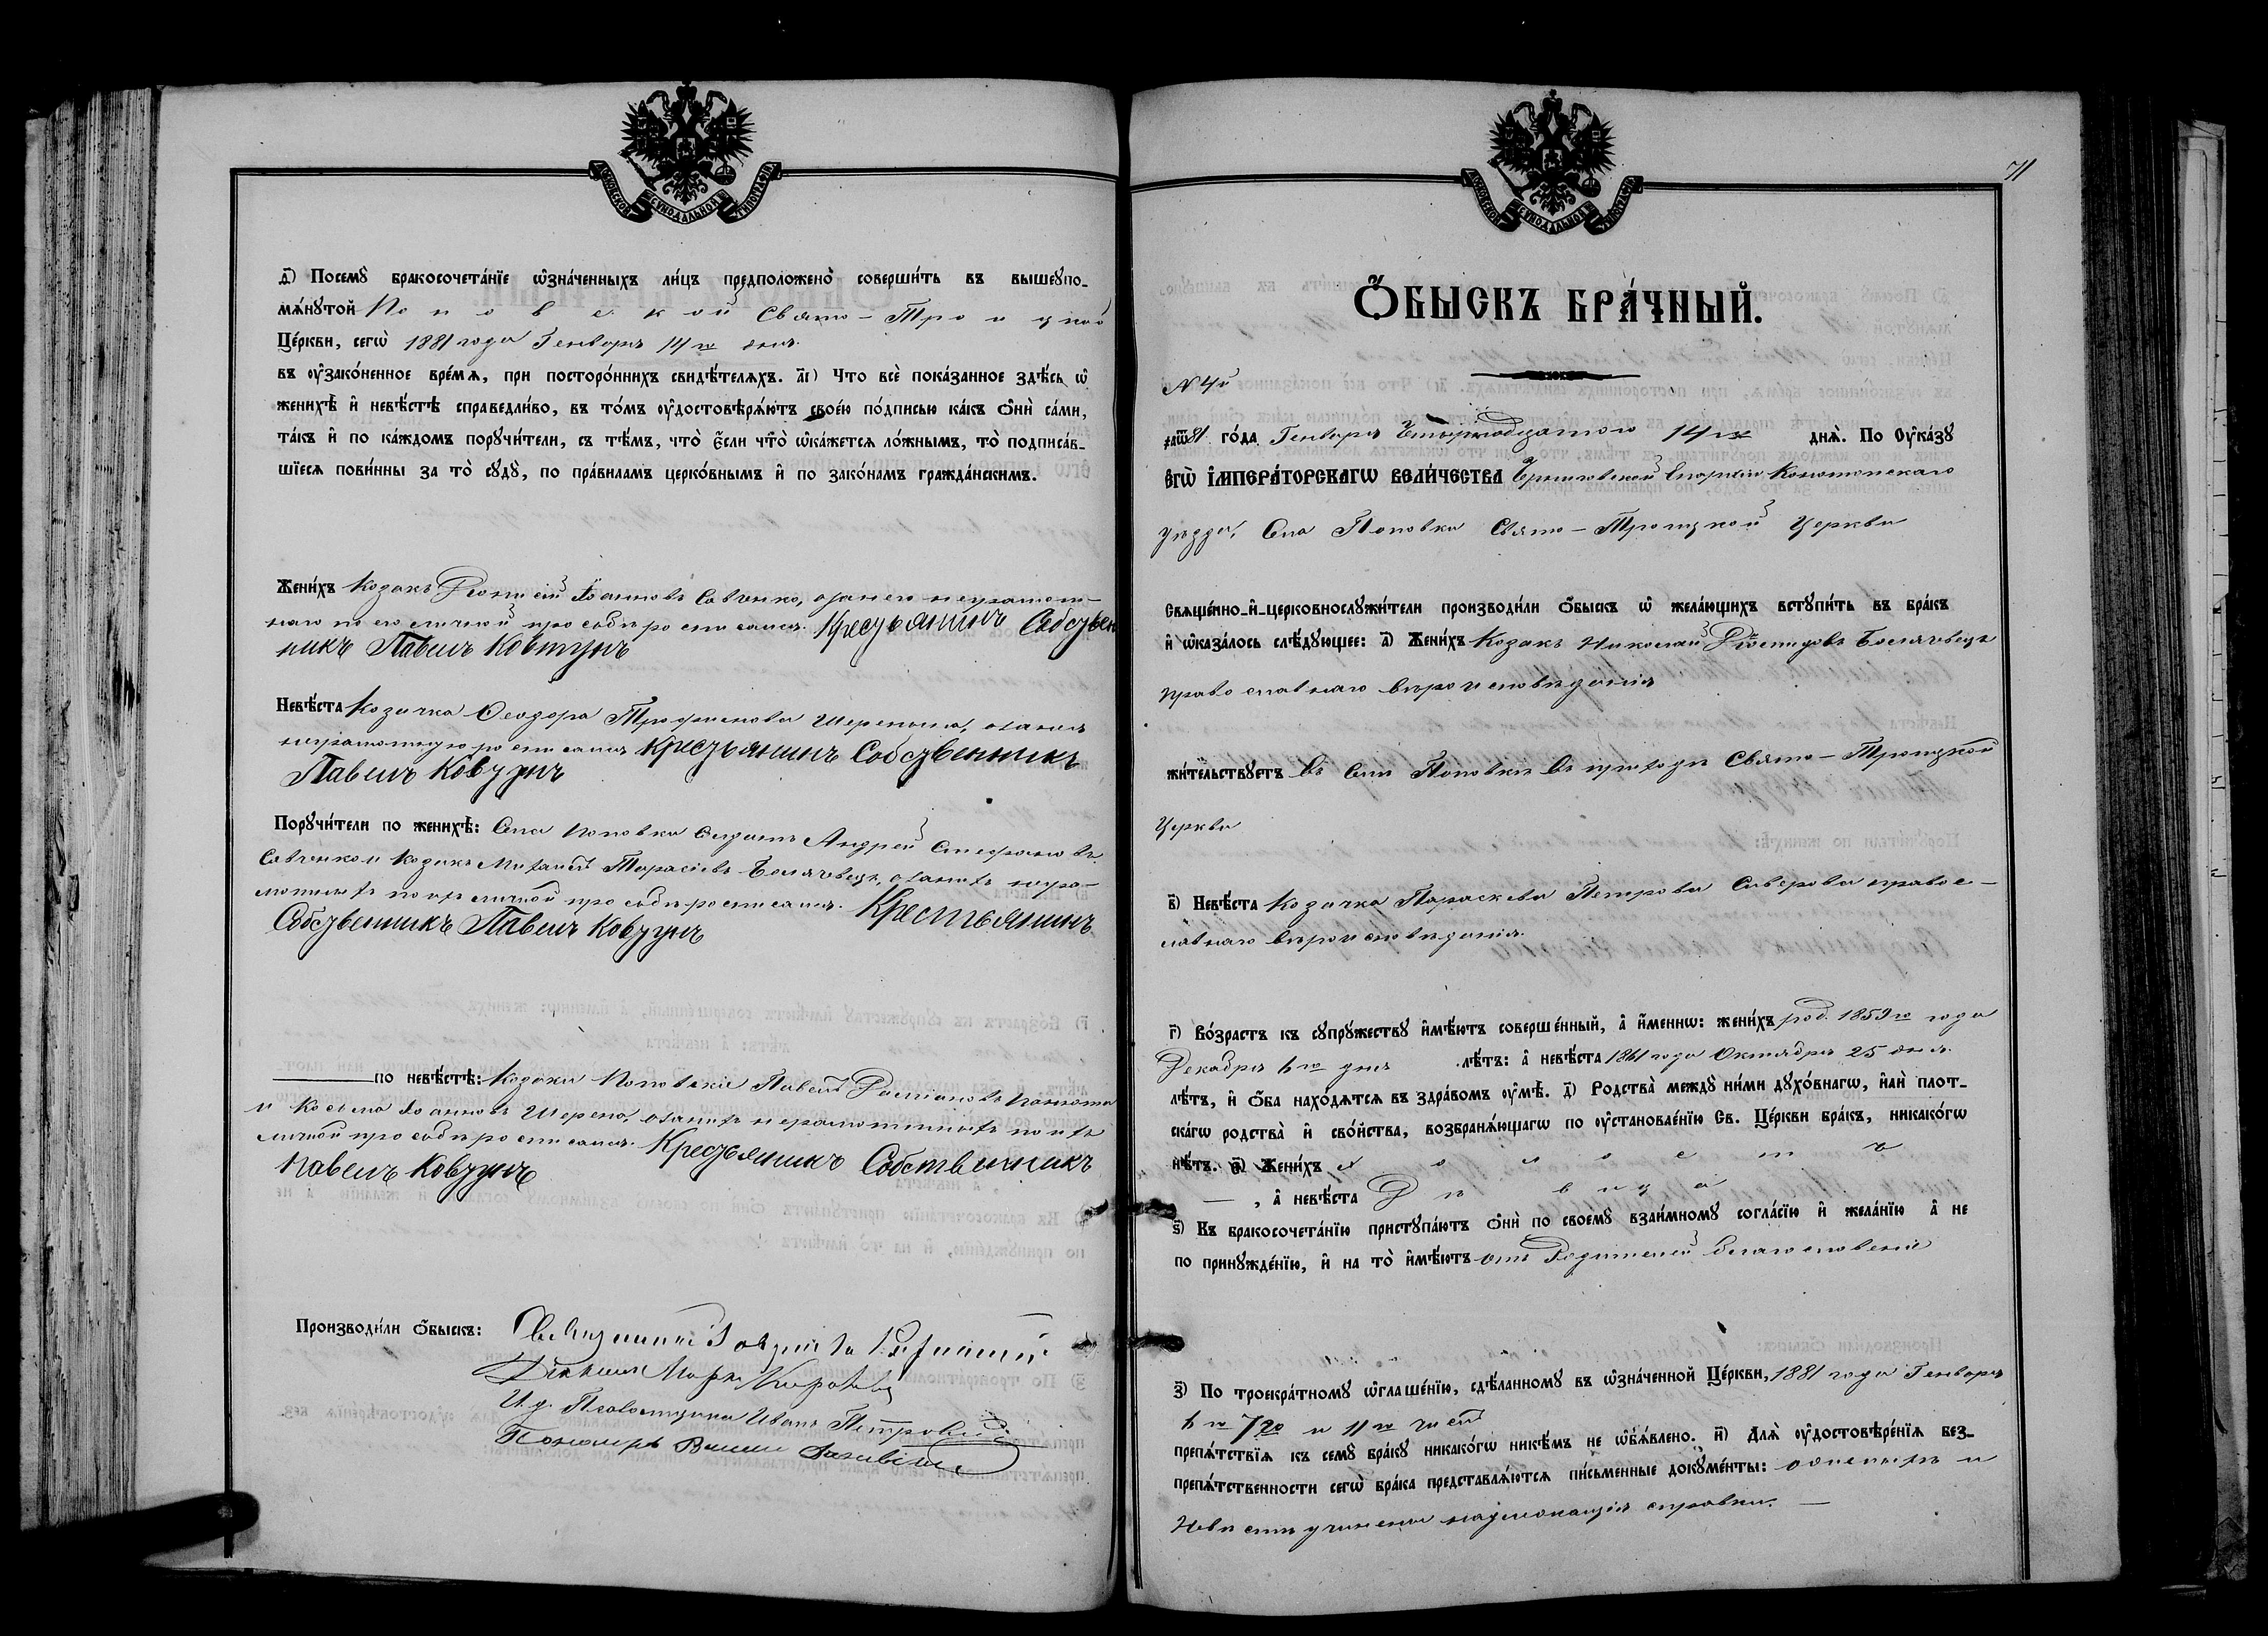 МОСКОВСКОЙ СѴНОДАЛЬНОЙ ТИПОГРАФІИ
д҃) Посемꙋ бракосочета́нїе ѡ҆зна́ченныхъ ли́цъ предположено̀ соверши́ть въ вышеꙋпо-
мѧ́нꙋтой Поповской Свято-Троицкой
Це́ркви, сегѡ̀ 1881 года Генваря 14го дня
въ оу҆зако́ненное вре́мѧ, при посторо́ннихъ свидѣ́телѧхъ. а҃і) Что̀ всѐ пока́занное здѣ́сь ѡ҆
женихѣ̀ и҆ невѣ́стѣ справедли́во, въ то́мъ оу҆достовѣрѧ́ютъ свое́ю по́дписью ка́къ ѻ҆нѝ са́ми,
та́къ и҆ по ка́ждомъ порꙋчи́тели, съ тѣ́мъ, что̀ є҆́сли что̀ ѡ҆ка́жетсѧ ло́жнымъ, то̀ подписа́в-
шїесѧ пови́нны за то̀ сꙋдꙋ̀, по пра́виламъ церко́внымъ и҆ по зако́намъ гражда́нскимъ.
Жени́хъ Козакъ Іоанновъ Савченко, а за него неграмот-
наго по его личной просьбѣ росписался Крестьянинъ Собствен
никъ Павелъ Ковтунъ
Невѣ́ста Козачка Ѳеодора Трофимова Шерепова, а за нея
неграмотную росписался Крестьянинъ Собственникъ
Павелъ Ковтунъ
Порꙋчи́тели по женихѣ̀: Села Поповки Солдатъ Андрей Стефановъ
Савченко и Козакъ Михаилъ Тарасіевъ Болячевецъ, а за нихъ негра-
мотныхъ по ихъ личной просьбѣ росписался. Крестьянинъ
Собственникъ Павелъ Ковтунъ
по невѣ́стѣ: Козаки Поповскіе Павелъ
и Косьма Іоанновъ Шерепа, а за нихъ неграмотныхъ по ихъ
личной просьбѣ росписался. Крестьянинъ Собственникъ
Павелъ Ковтунъ
Производи́ли ѻ҆́быскъ: Священникъ
Діаконъ Маркъ
И. д. Псаломщика Иванъ Петровскій
Пономарь
71
МОСКОВСКОЙ СѴНОДАЛЬНОЙ ТИПОГРАФІИ
Ѻ҆́БЫСКЪ БРА́ЧНЫЙ.
№ 4й
҂аѿ81 го́да Генваря Четырнадцатого 14го днѧ̀. По Оу҆ка́зꙋ
Є҆гѡ̀ І҆МПЕРА́ТОРСКАГѠ ВЕЛИ́ЧЕСТВА Черниговской Епархіи Конотопскаго
уѣзда, Села Поповки Свято-Троицкой Церкви
Свѧще́нно-и҆-церковнослꙋжи́тели производи́ли ѻ҆́быскъ ѡ҆ жела́ющихъ встꙋпи́ть въ бра́къ
и҆ ѡ҆каза́лось слѣ́дꙋющее: а҃) Жени́хъ Козакъ Николай Болячевецъ
православнаго вѣроисповѣданія
жи́тельствꙋетъ въ селѣ Поповкѣ въ приходѣ Свято-Троицкой
Церкви
в҃) Невѣ́ста Козачка Параскева Петрова Саверова правос-
лавнаго вѣроисповѣданія.
г҃) Во́зрастъ къ сꙋпрꙋ́жествꙋ и҆мѣ́ютъ соверше́нный, а҆ и҆́меннѡ: жени́хъ род. 1859го года
Декабря 6го дня лѣ́тъ: а҆ невѣ́ста 1861 года Октября 25 дня
лѣ́тъ, и҆ ѻ҆́ба нахо́дѧтсѧ въ здра́вомъ оу҆мѣ̀. д҃) Родства̀ междꙋ̀ ни́ми дꙋхо́внагѡ, и҆лѝ пло́т-
скагѡ родства̀ и҆ сво́йства, возбранѧ́ющагѡ по оу҆становле́нїю Св. Це́ркви бра́къ, никако́гѡ
нѣ́тъ. є҃) Жени́хъ холостъ
—, а҆ невѣ́ста Дѣвица
ѕ҃) Къ бракосочета́нїю пристꙋпа́ютъ ѻ҆нѝ по своемꙋ̀ взаи́мномꙋ согла́сїю и҆ жела́нїю а҆ не
по принꙋжде́нїю, и҆ на то̀ и҆мѣ́ютъ отъ Родителей благословеніе
з҃) По троекра́тномꙋ ѡ҆глаше́нїю, сдѣ́ланномꙋ въ ѡ҆зна́ченной Це́ркви, 1881 года Генваря
6го 7го и 11го числъ
препѧ́тствїѧ къ семꙋ̀ бра́кꙋ никако́гѡ никѣ́мъ не ѡ҆б̾ѧ́влено. и҃) Длѧ̀ оу҆достовѣре́нїѧ без-
препѧ́тственности сегѡ̀ бра́ка представлѧ́ютсѧ пи́сьменные докꙋме́нты: о женихѣ и
Невѣстѣ учинены надлежащія справки. —